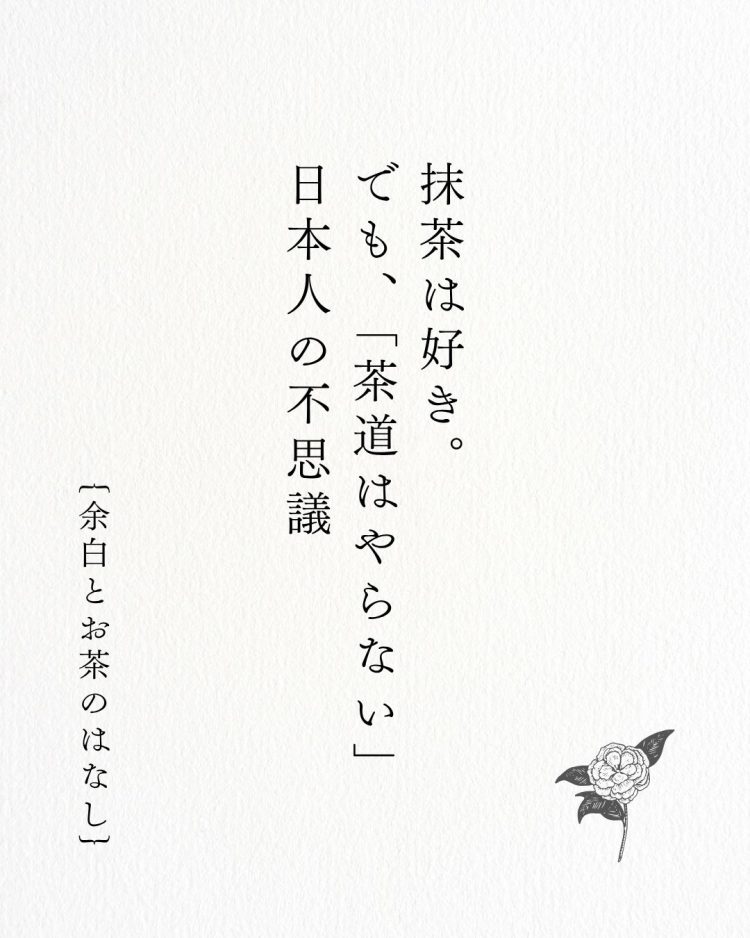 抹茶は好き。
でも、「茶道はやらない」
日本人の不思議
{余白とお茶のはなし}